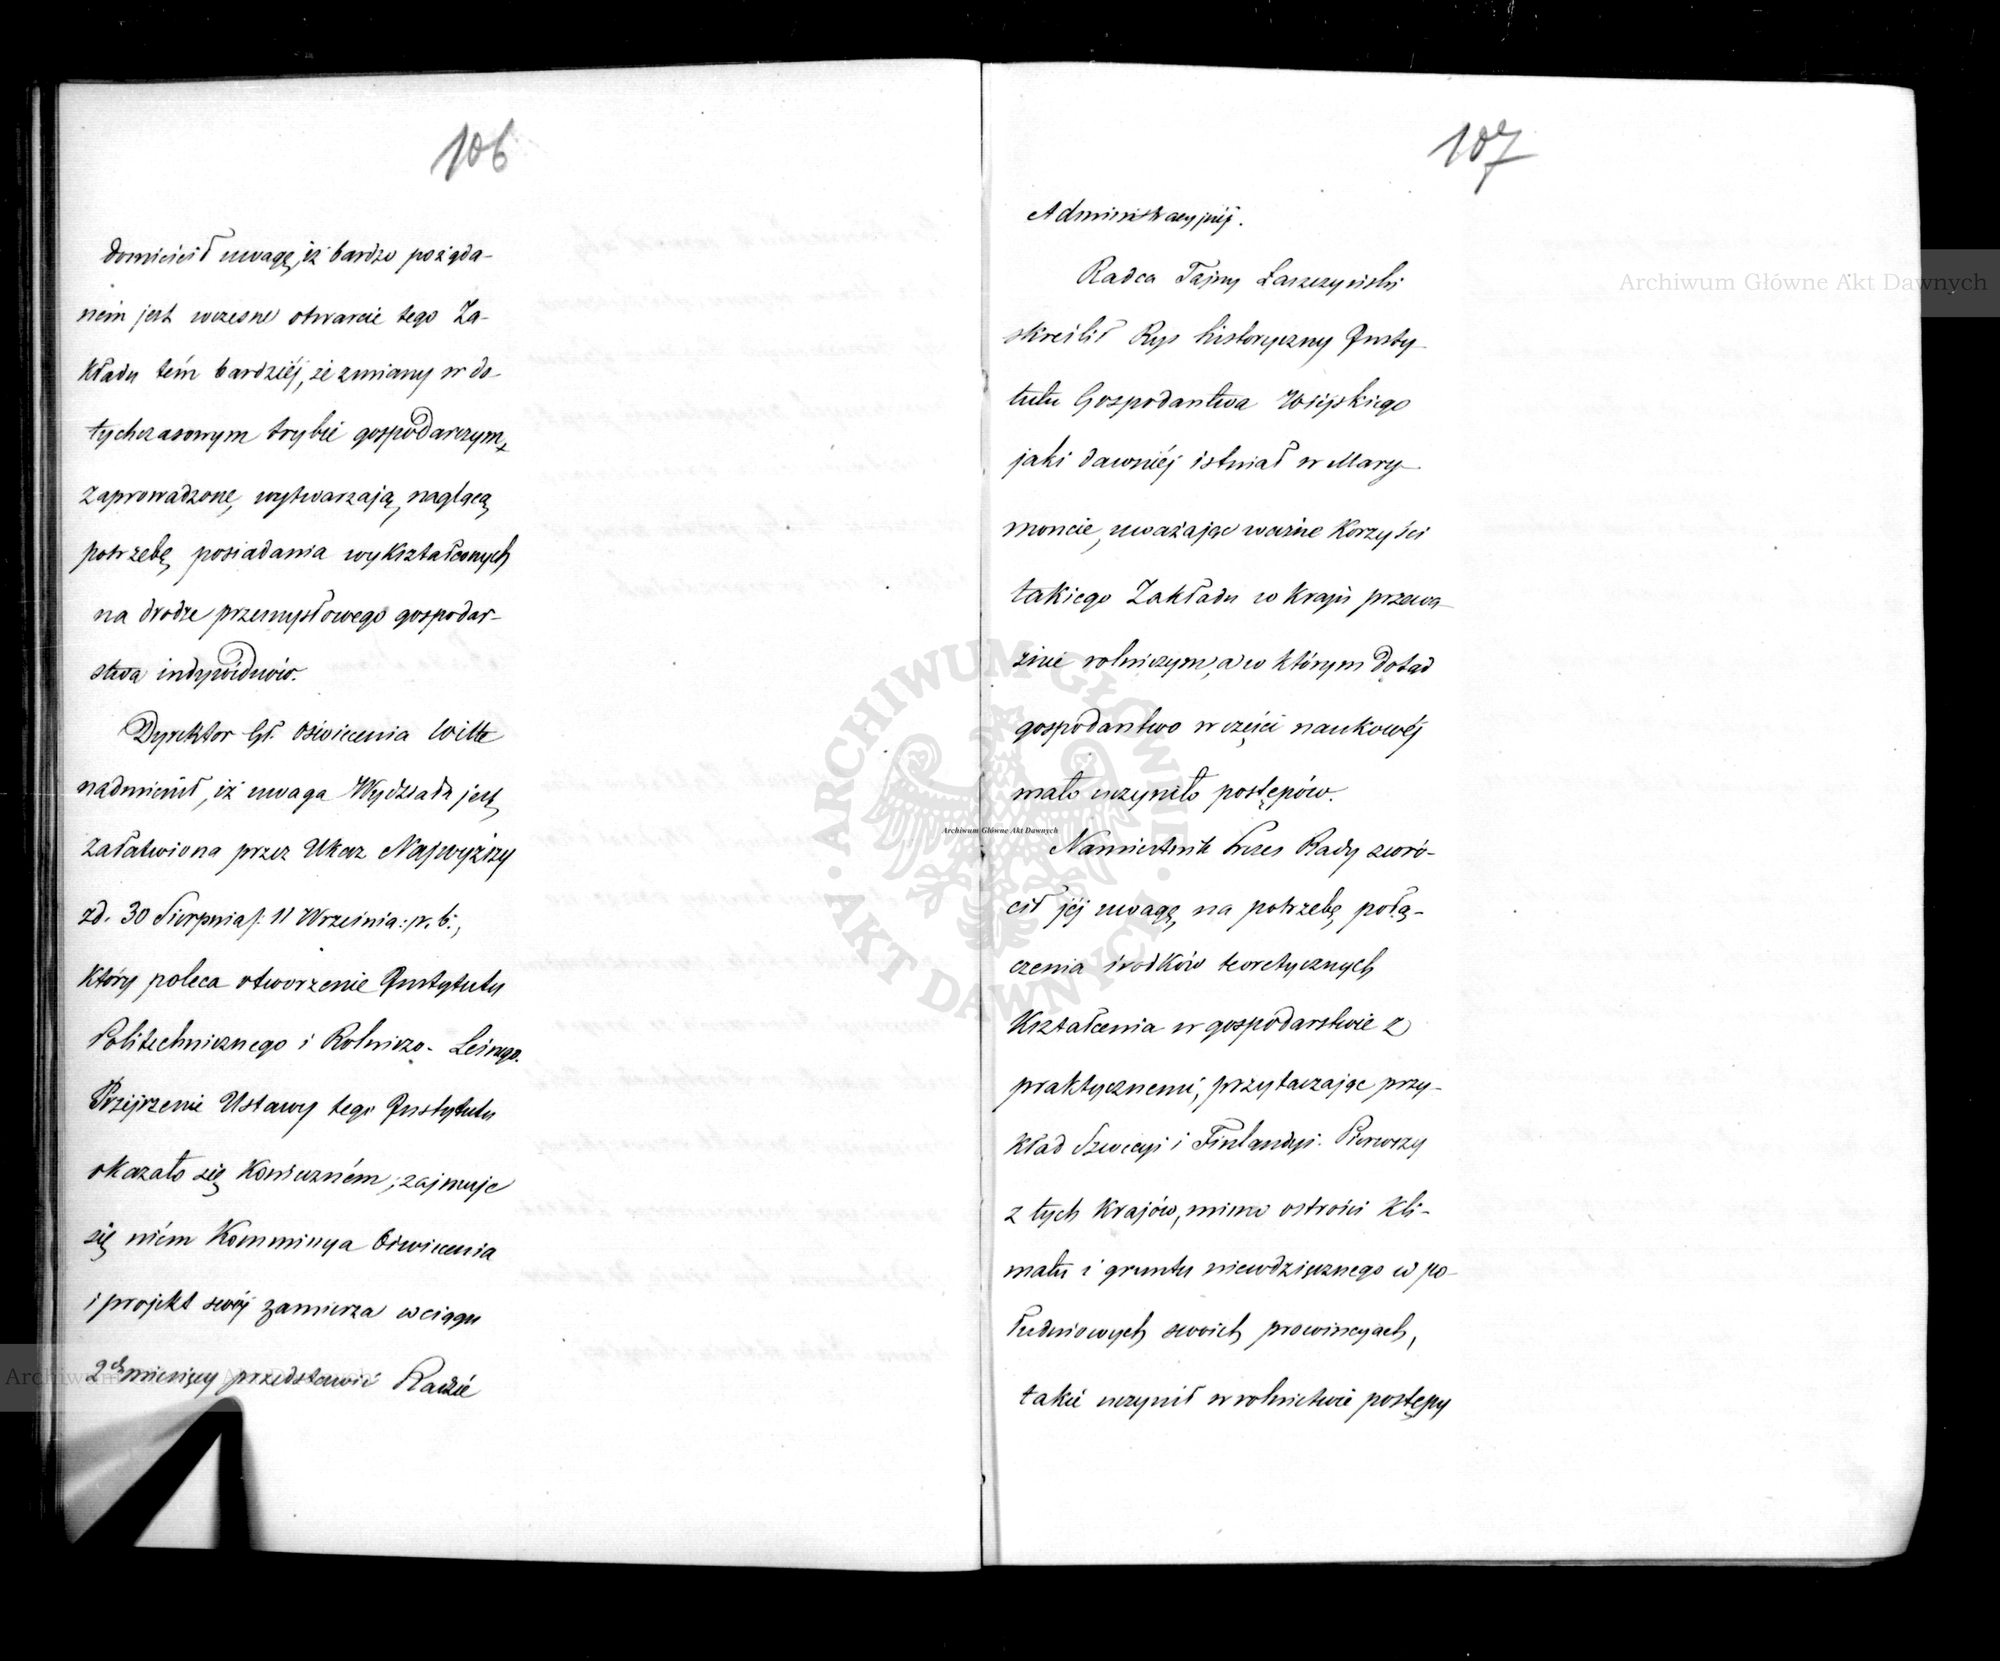 106
domieścił uwagę, iż bardzo pożąda-
ném jest wczesne otwarcie tego Za-
kładu tém bardziéj, że zmiany w do-
tychczasowym trybie gospodarczym,
zaprowadzone, wytwarzają naglącą
potrzebę posiadania wykształconych
na drodze przemysłowego gospodar-
stwa indywiduów.
Dyrektor Gł. Oświecenia Witte
nadmienił, iż uwaga Wydziału jest
załatwiona przez Ukaz Najwyższy
z d. 30 Sierpnia /: 11 Września :/ r. b.,
który poleca otworzenie Instytutu
Politechnicznego i Rolniczo-Leśnego.
Przejrzenie Ustawy tego Instytutu
okazało się konieczném; zajmuje
się niém Kommissya Oświecenia
i projekt swój zamierza w ciągu
2ch miesięcy przedstawić Radzie
107
Administracyjnéj.
Radca Tajny Łaszczyński
skreślił Rys historyczny Insty-
tutu Gospodarstwa Wiejskiego
jaki dawniéj istniał w Mary-
moncie, uważając ważne korzyści
takiego Zakładu w kraju przewa-
żnie rolniczym, a w którym dotąd
gospodarstwo w części naukowéj
mało uczyniło postępów.
Namiestnik Prezes Rady zwró-
cił jéj uwagę na potrzebę połą-
czenia środków teoretycznych
kształcenia w gospodarstwie z
praktycznemi, przytaczając przy-
kład Szwecyi i Finlandyi. Pierwszy
z tych krajów, mimo ostrości kli-
matu i gruntu niewdzięcznego w po-
łudniowych swoich prowincyach,
takie uczynił w rolnictwie postępy
Archiwum Główne Akt Dawnych
Archiwum Główne Akt Dawnych
ARCHIWUM GŁÓWNE · AKT DAWNYCH ·